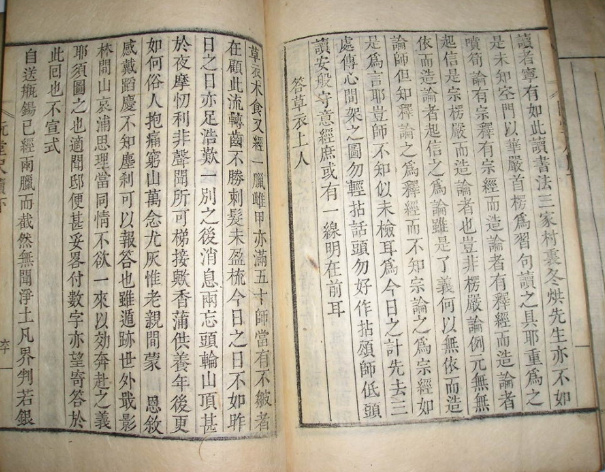 讀者寧有如此讀書法三家村裏冬烘先生亦不如
是未知空門以華嚴首楞爲習句讀之具耶重爲之
噴筍論有宗釋有宗經而造論者有釋經而造論者
起信是宗楞嚴而造者也豈非楞嚴論例元無無
依而造論者起信之爲論雖是了義何以無依而造
論師但知釋論之爲釋經而不知宗論之爲宗經如
是爲言耶豈師不知似未檢耳爲今日之計先去三
處傳心間架之圖勿輕拈話頭勿好作拈頌師低頭
讀安般守意經庶或有一線明在前耳
答草衣上人
草衣木食又經一臘雌甲亦滿五十師當有不皺者
在顧此流轉齒不勝刺髮未盈梳今日之日不如昨
日之日亦足浩歎一別之後消息兩忘頭輪山頂甚
於夜摩忉利非聲聞所可梯接歟香蒲供養年後更
如何俗人抱痛窮山萬念尤灰惟老親間蒙 恩敘
感戴蹈慶不知塵刹可以報答也雖遁跡世外戰影
林間山哀浦思理當同情不欲一來以効奔赴之義
耶須圖之也適聞邸便甚妥畧付數字亦望寄答於
此回也不宣式
自送瓶錫已經兩臘而截然無聞淨土凡界判若銀